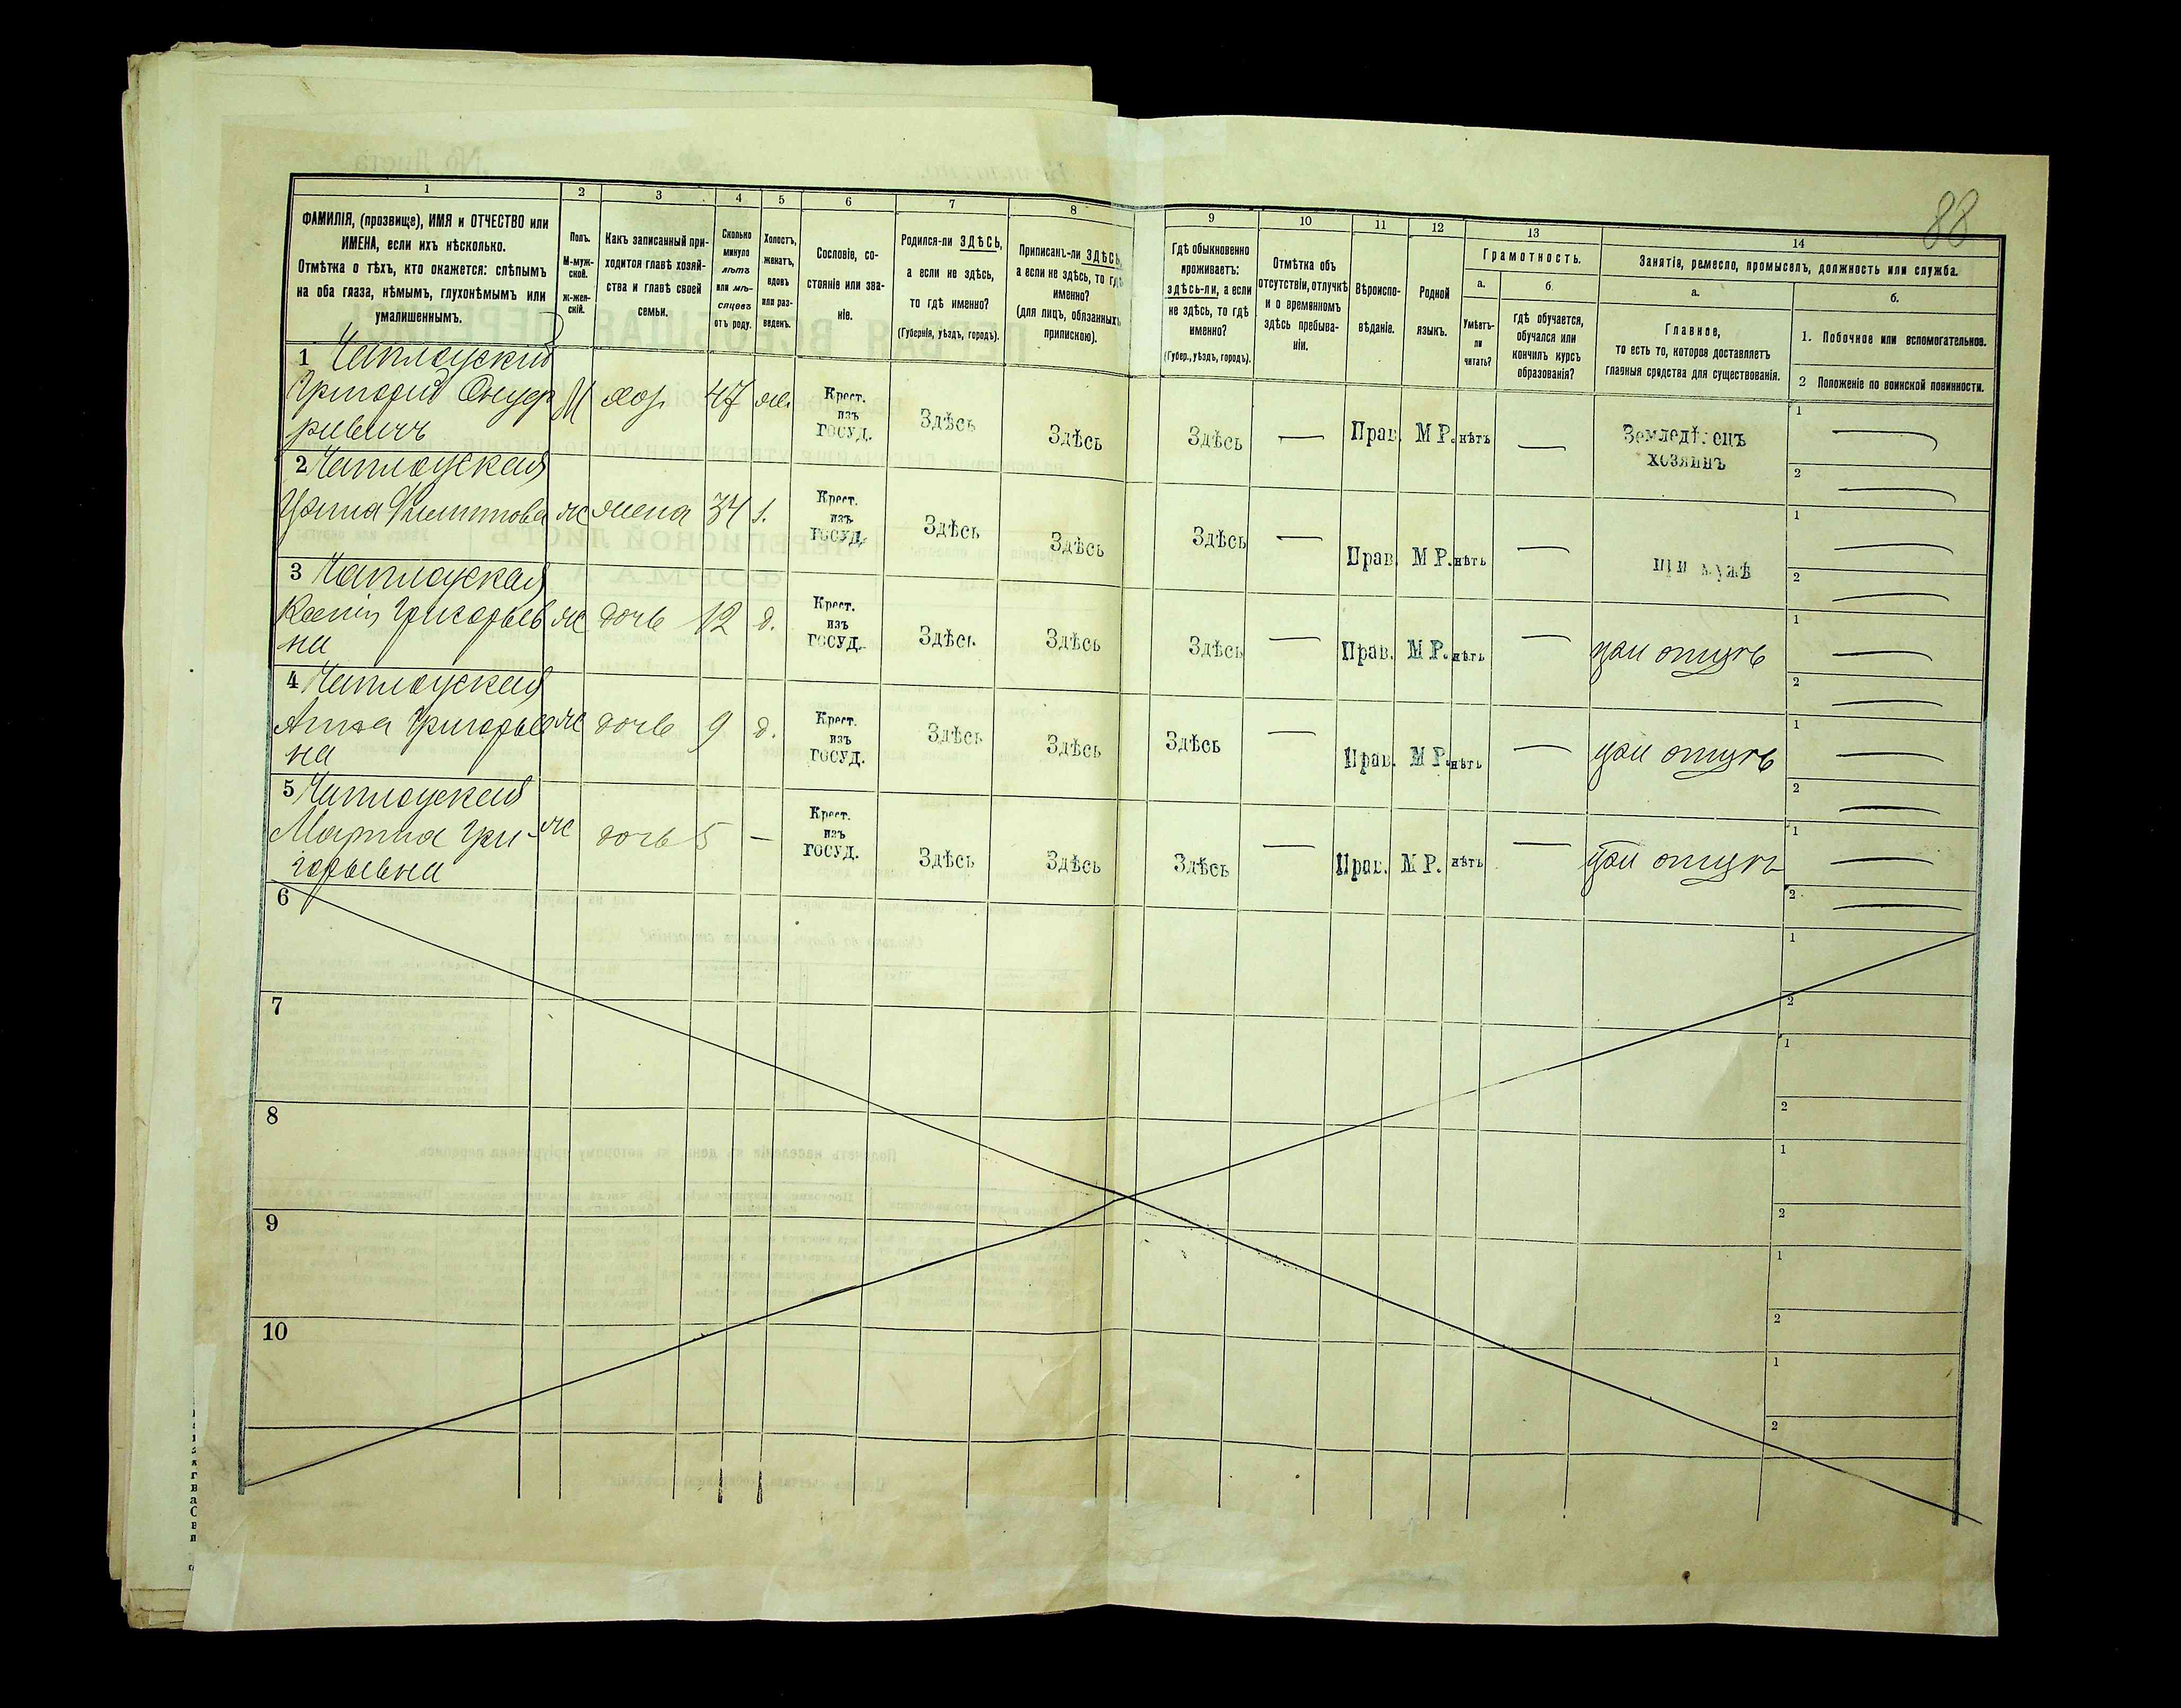 88
1 2 3 4 5 6 7 8 9 10 11 12 13 14
ФАМИЛІЯ, (прозвище), ИМЯ и ОТЧЕСТВО или
ИМЕНА, если ихъ нѣсколько.
Отмѣтка о тѣхъ, кто окажется: слѣпымъ
на оба глаза, нѣмымъ, глухонѣмымъ или
умалишеннымъ.
Полъ.
М-муж-
ской.
Ж-жен-
скій.
Какъ записанный при-
ходится главѣ хозяй-
ства и главѣ своей
семьи.
Сколько
минуло
лѣтъ
или мѣ-
сяцевъ
отъ роду.
Холостъ,
женатъ,
вдовъ
или раз-
веденъ.
Сословіе, со-
стояніе или зва-
ніе.
Родился-ли ЗДѢСЬ,
а если не здѣсь,
то гдѣ именно?
(Губернія, уѣздъ, городъ).
Приписанъ-ли ЗДѢСЬ,
а если не здѣсь, то гдѣ
именно?
(для лицъ, обязанныхъ
припискою).
Гдѣ обыкновенно
проживаетъ:
здѣсь-ли, а если
не здѣсь, то гдѣ
именно?
(Губер., уѣздъ, городъ).
Отмѣтка объ
отсутствіи, отлучкѣ
и о временномъ
здѣсь пребыва-
ніи.
Вѣроиспо-
вѣданіе.
Родной
языкъ.
Грамотность.
а.
Умѣетъ-
ли
читать?
б.
гдѣ обучается,
обучался или
кончилъ курсъ
образованія?
Занятіе, ремесло, промыселъ, должность или служба.
а.
Главное,
то есть то, которое доставляетъ
главныя средства для существованія.
б.
1. Побочное или вспомогательное.
2 Положеніе по воинской повинности.
1
Григорій
М хоз. 47 ж. Крест. изъ ГОСУД. Здѣсь Здѣсь Здѣсь — Прав. М Р. нѣтъ — Земледѣлецъ хозяинъ 1 — 2 —
2
Филиппова ж жена 34 з. Крест. изъ ГОСУД. Здѣсь Здѣсь Здѣсь — Прав. М Р. нѣтъ — при мужѣ 1 — 2 —
3
Ксенія Григорьев
на
ж дочь 12 д. Крест. изъ ГОСУД. Здѣсь Здѣсь Здѣсь — Прав. М Р. нѣтъ — при отцѣ 1 — 2 —
4
Анна Григорьев
на
ж дочь 9 д. Крест. изъ ГОСУД. Здѣсь Здѣсь Здѣсь — Прав. М Р. нѣтъ — при отцѣ 1 — 2 —
5
Григорьевна
ж дочь 5 — Крест. изъ ГОСУД. Здѣсь Здѣсь Здѣсь — Прав. М Р. нѣтъ — при отцѣ 1 — 2 —
6 1 2
7 1 2
8 1 2
9 1 2
10 1 2